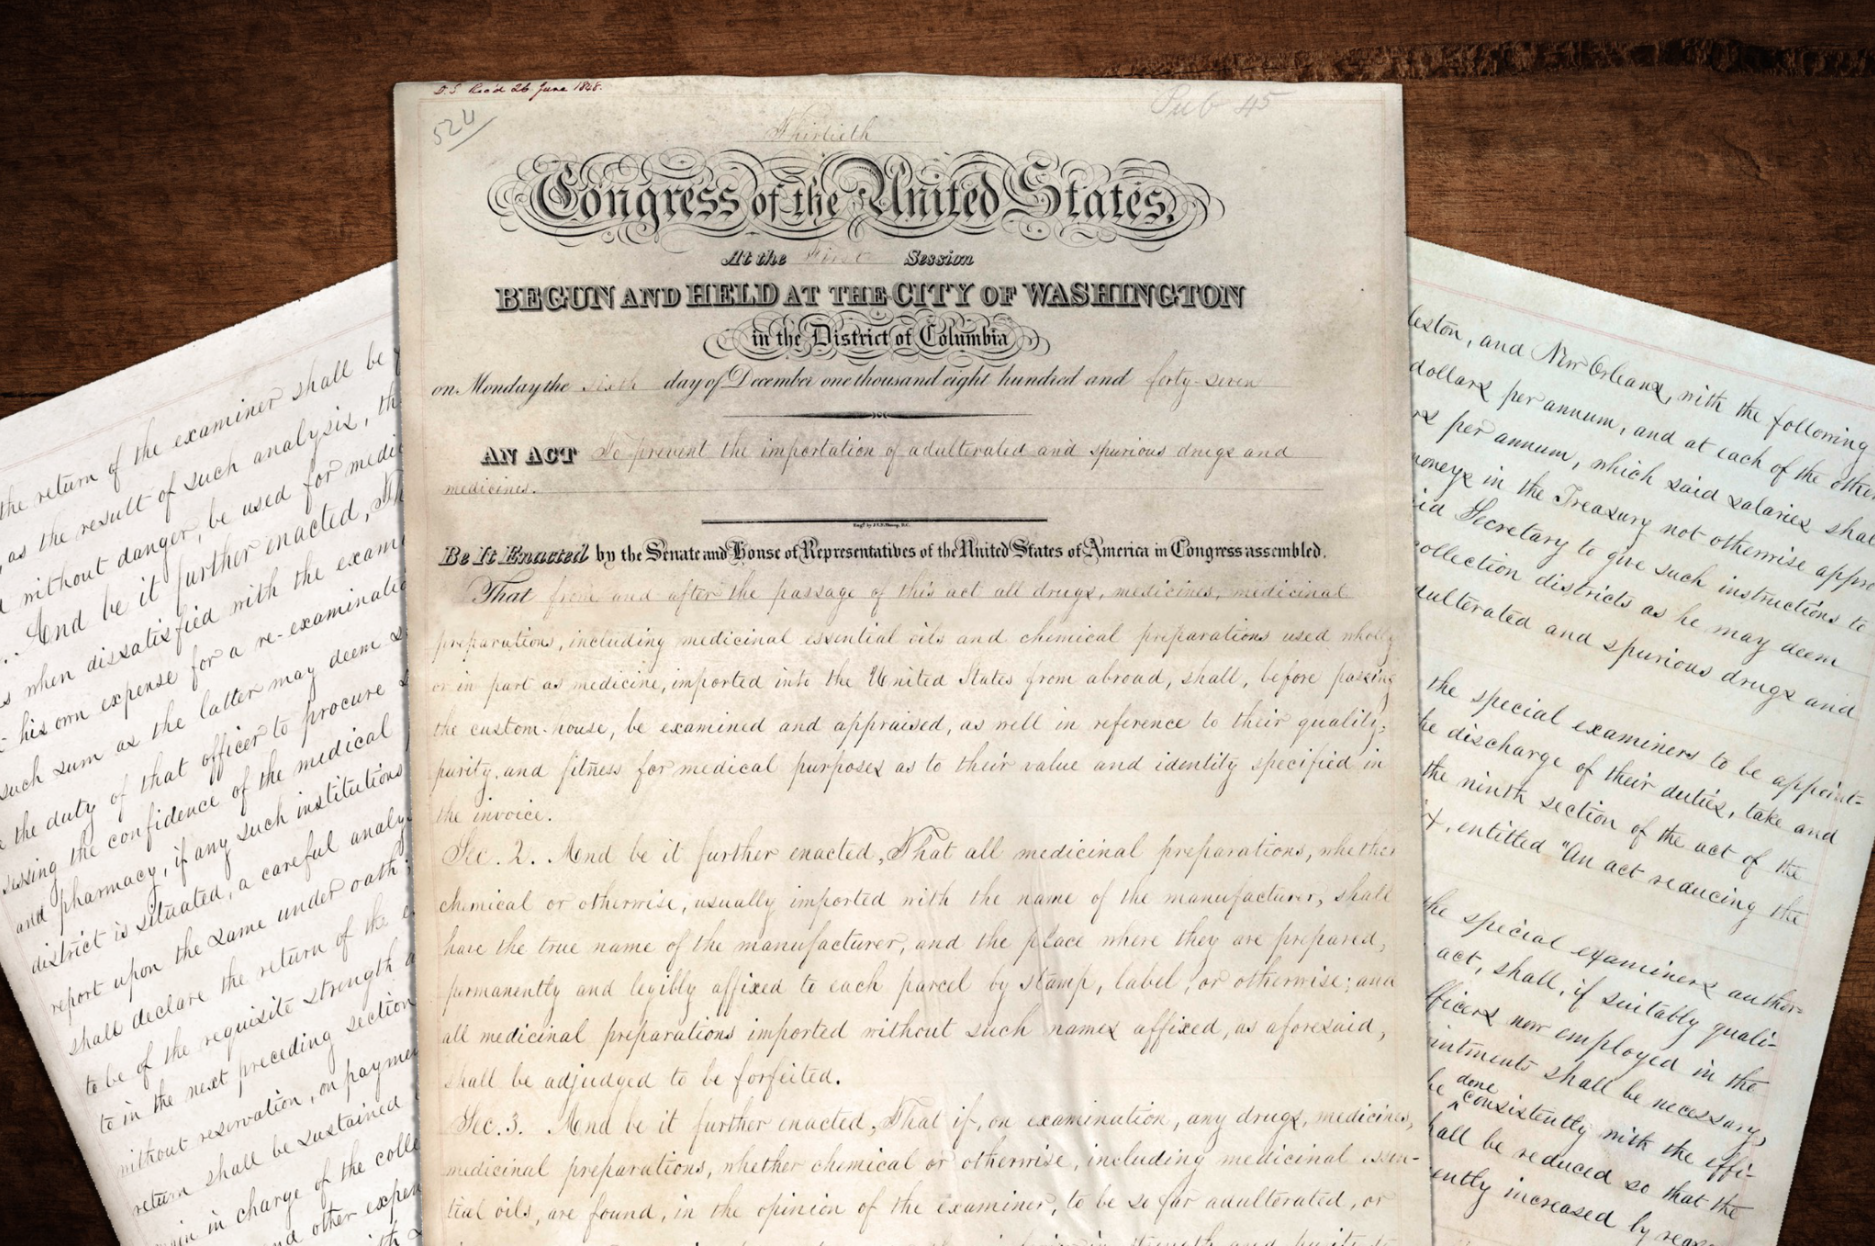 D.S. Rec'd 26 June 1848.
524
Pub 45
Thirtieth
Congress of the United States,
At the First Session
BEGUN AND HELD AT THE CITY OF WASHINGTON
in the District of Columbia
on Monday the sixth day of December one thousand eight hundred and forty-seven
AN ACT To prevent the importation of adulterated and spurious drugs and
medicines.
Be It Enacted by the Senate and House of Representatives of the United States of America in Congress assembled,
That from and after the passage of this act all drugs, medicines, medicinal
preparations, including medicinal essential oils and chemical preparations used wholly
or in part as medicine, imported into the United States from abroad, shall, before passing
the custom-house, be examined and appraised, as well in reference to their quality,
purity, and fitness for medical purposes as to their value and identity specified in
the invoice.
Sec. 2. And be it further enacted, That all medicinal preparations, whether
chemical or otherwise, usually imported with the name of the manufacturer, shall
have the true name of the manufacturer, and the place where they are prepared,
permanently and legibly affixed to each parcel by stamp, label, or otherwise; and
all medicinal preparations imported without such names affixed, as aforesaid,
shall be adjudged to be forfeited.
Sec. 3. And be it further enacted, That if, on examination, any drugs, medicines,
medicinal preparations, whether chemical or otherwise, including medicinal essen-
tial oils, are found, in the opinion of the examiner, to be so far adulterated, or
the return of the examiner shall be
as the result of such analysis, th
without danger, be used for medi
And be it further enacted, Th
s when dissatisfied with the exam
his own expense for a re-examinatio
such sum as the latter may deem s
the duty of that officer to procure
sessing the confidence of the medical
and pharmacy, if any such institutions
district is situated, a careful analy
report upon the same under oath
shall declare the return of the
to be of the requisite strength
to in the next preceding section
without reservation, on payme
return shall be sustained
in charge of the colle
nd other expen
leston, and New Orleans, with the following
dollars per annum, and at each of the other
rs per annum, which said salaries shal
moneys in the Treasury not otherwise appro
id Secretary to give such instructions to
collection districts as he may deem
dulterated and spurious drugs and
the special examiners to be appoint-
he discharge of their duties, take and
the ninth section of the act of the
entitled "An act reducing the
the special examiners author-
act, shall, if suitably quali-
fficers now employed in the
intments shall be necessary,
be done consistently with the effi-
hall be reduced so that the
ently increased by reas